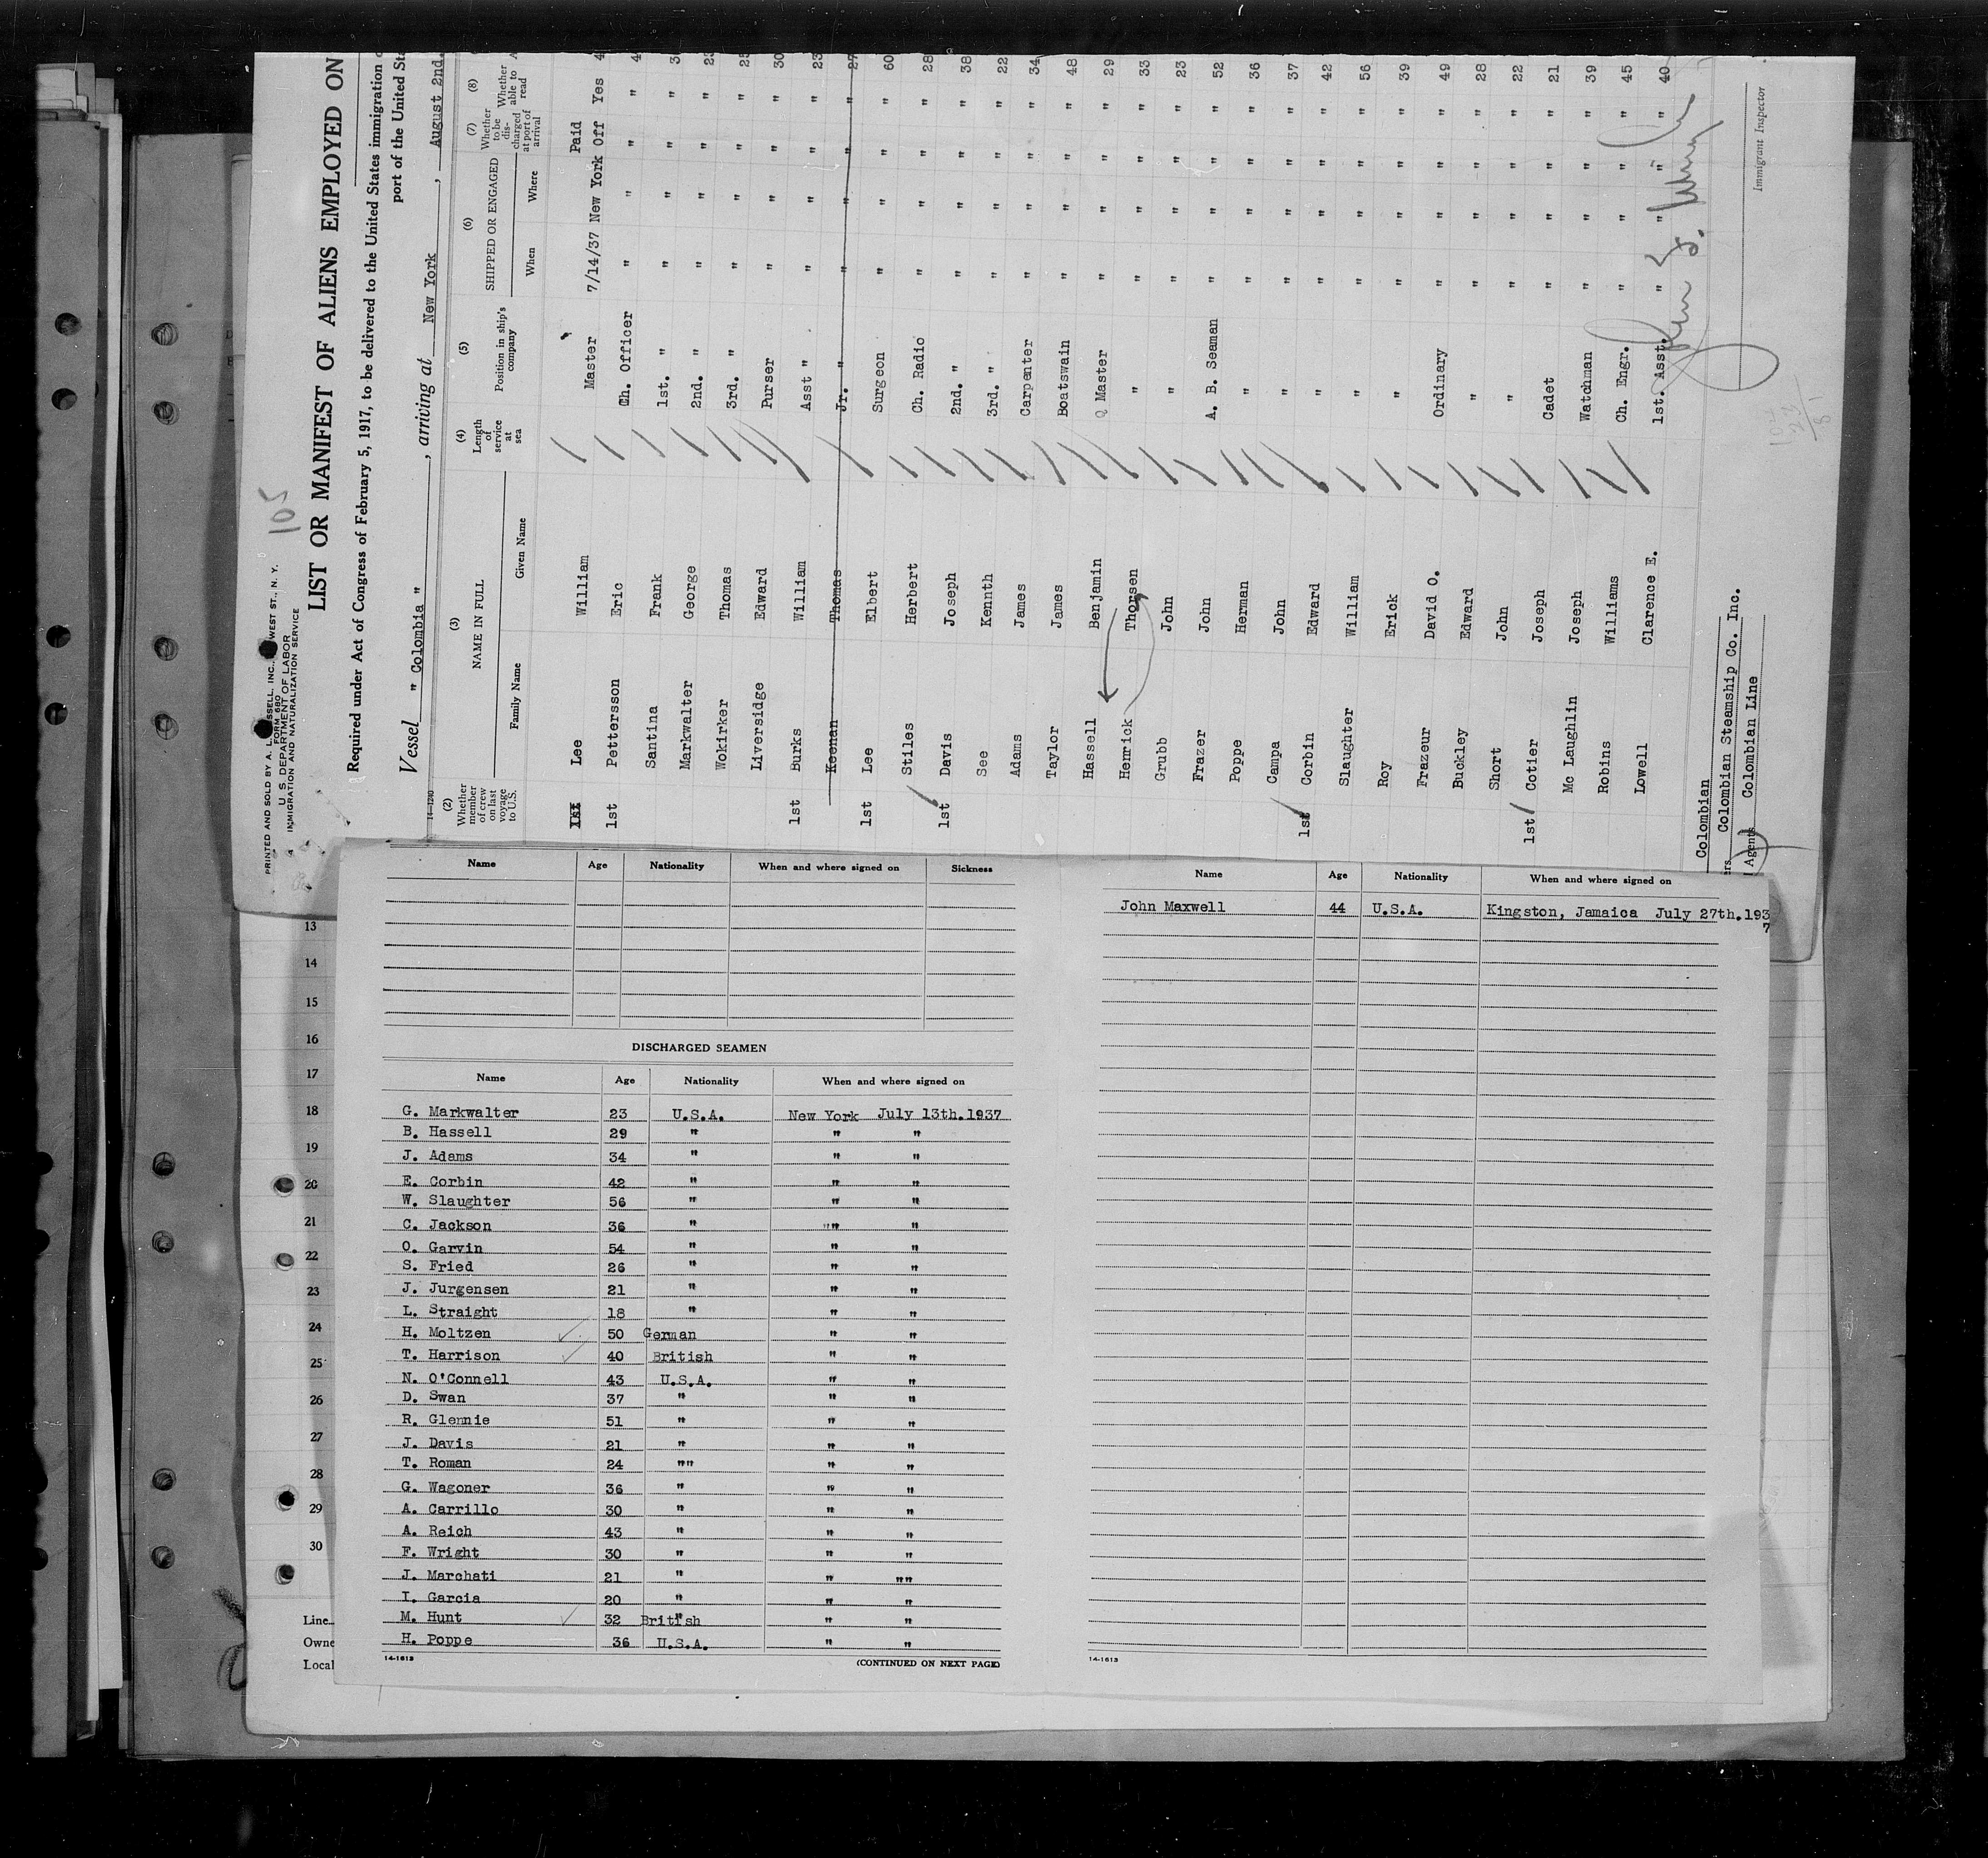 PRINTED AND SOLD BY A. L. SSELL, INC., WEST ST., N. Y.
FORM 680
U. S. DEPARTMENT OF LABOR
IMMIGRATION AND NATURALIZATION SERVICE
105
LIST OR MANIFEST OF ALIENS EMPLOYED ON
Required under Act of Congress of February 5, 1917, to be delivered to the United States immigration
port of the United Sta
Vessel " Colombia " , arriving at New York , August 2nd.
14-1240
(2) Whether member of crew on last voyage to U.S. (3) NAME IN FULL Family Name Given Name (4) Length of service at sea (5) Position in ship's company (6) SHIPPED OR ENGAGED When Where (7) Whether to be discharged at port of arrival (8) Whether able to read
1st Lee William Master 7/14/37 New York Paid Off Yes 4
1st Pettersson Eric Ch. Officer " " " " 4
Santina Frank 1st. " " " " " 3
Markwalter George 2nd. " " " " " 23
Wokirker Thomas 3rd. " " " " " 25
Liversidge Edward Purser " " " " 30
1st Burks William Asst " " " " " 23
Keenan Thomas Jr. " " " " " 27
1st Lee Elbert Surgeon " " " " 60
Stiles Herbert Ch. Radio " " " " 28
1st Davis Joseph 2nd. " " " " " 38
See Kennth 3rd. " " " " " 22
Adams James Carpenter " " " " 34
Taylor James Boatswain " " " " 48
Hassell Benjamin Q Master " " " " 29
Henrick Thorsen " " " " " 33
Grubb John " " " " " 23
Frazer John A. B. Seaman " " " " 52
Poppe Herman " " " " " 36
Campa John " " " " " 37
1st Corbin Edward " " " " " 42
Slaughter William " " " " " 56
Roy Erick " " " " " 39
Frazeur David O. Ordinary " " " " 49
Buckley Edward " " " " " 28
Short John " " " " " 22
1st Cotier Joseph Cadet " " " " 21
Mc Laughlin Joseph Watchman " " " " 39
Robins Williams Ch. Engr. " " " " 45
Lowell Clarence E. 1st. Asst. " " " " 40
Colombian
ers Colombian Steamship Co. Inc.
Agents Colombian Line
Immigrant Inspector
Name Age Nationality When and where signed on Sickness
DISCHARGED SEAMEN
Name Age Nationality When and where signed on
G. Markwalter 23 U.S.A. New York July 13th.1937
B. Hassell 29 " " "
J. Adams 34 " " "
E. Corbin 42 " " "
W. Slaughter 56 " " "
C. Jackson 36 " "" "
O. Garvin 54 " " "
S. Fried 26 " " "
J. Jurgensen 21 " " "
L. Straight 18 " " "
H. Moltzen 50 German " "
T. Harrison 40 British " "
N. O'Connell 43 U.S.A. " "
D. Swan 37 " " "
R. Glennie 51 " " "
J. Davis 21 " " "
T. Roman 24 "" " "
G. Wagoner 36 " " "
A. Carrillo 30 " " "
A. Reich 43 " " "
F. Wright 30 " " "
J. Marchati 21 " " ""
I. Garcia 20 " " "
M. Hunt 32 British " "
H. Poppe 36 U.S.A. " "
14-1613 (CONTINUED ON NEXT PAGE)
Name Age Nationality When and where signed on
John Maxwell 44 U.S.A. Kingston, Jamaica July 27th.193
7
14-1613
13
14
15
16
17
18
19
20
21
22
23
24
25
26
27
28
29
30
Line
Owne
Local